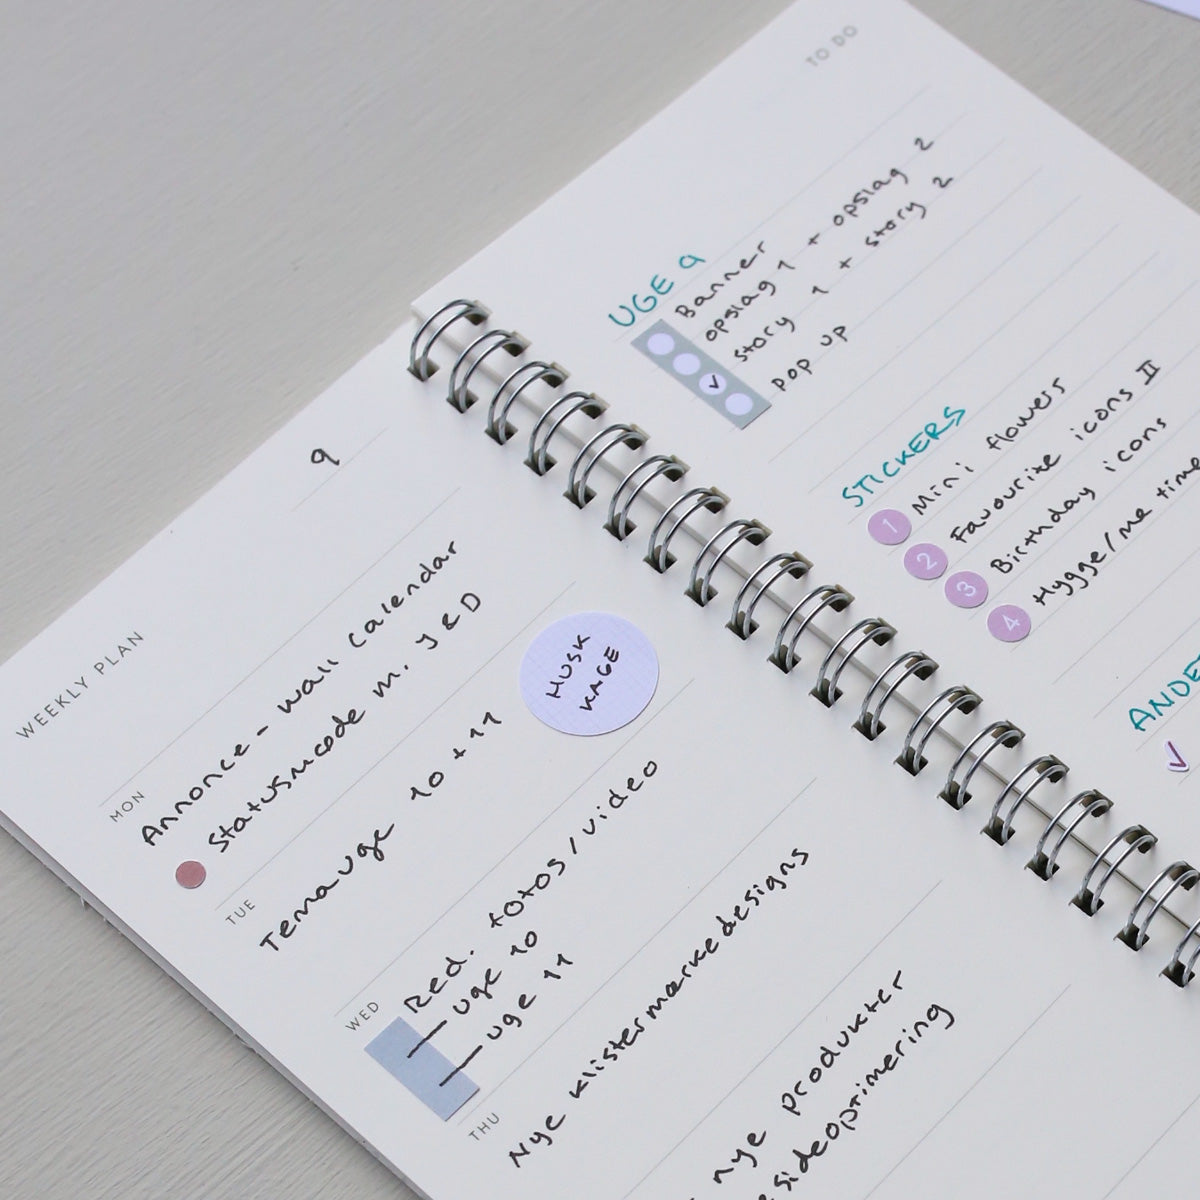 WEEKLY PLAN
9
MON
Annonce - wall calendar
Statusmøde m. J & D
TUE
Temauge 10 + 11
HUSK
KAGE
WED
Red. fotos / video
- uge 10
- uge 11
THU
Nye klistermærkedesigns
nye produkter
sideoptimering
TO DO
UGE 9
Banner
opslag 1 + opslag 2
✓ story 1 + story 2
pop up
STICKERS
1 Mini flowers
2 Favourite icons II
3 Birthday icons
4 Hygge/me time
✓